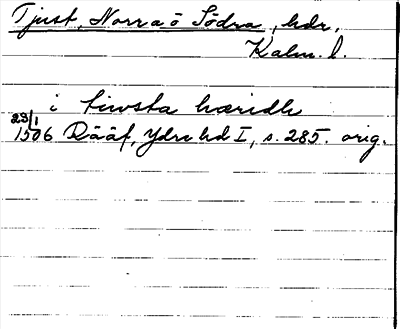 Tjust, Norra o Södra, hdr,
Kalm. l.
i tiwsta hæridh
23/1
1506 Rääf, Ydre hd I, s. 285. orig.